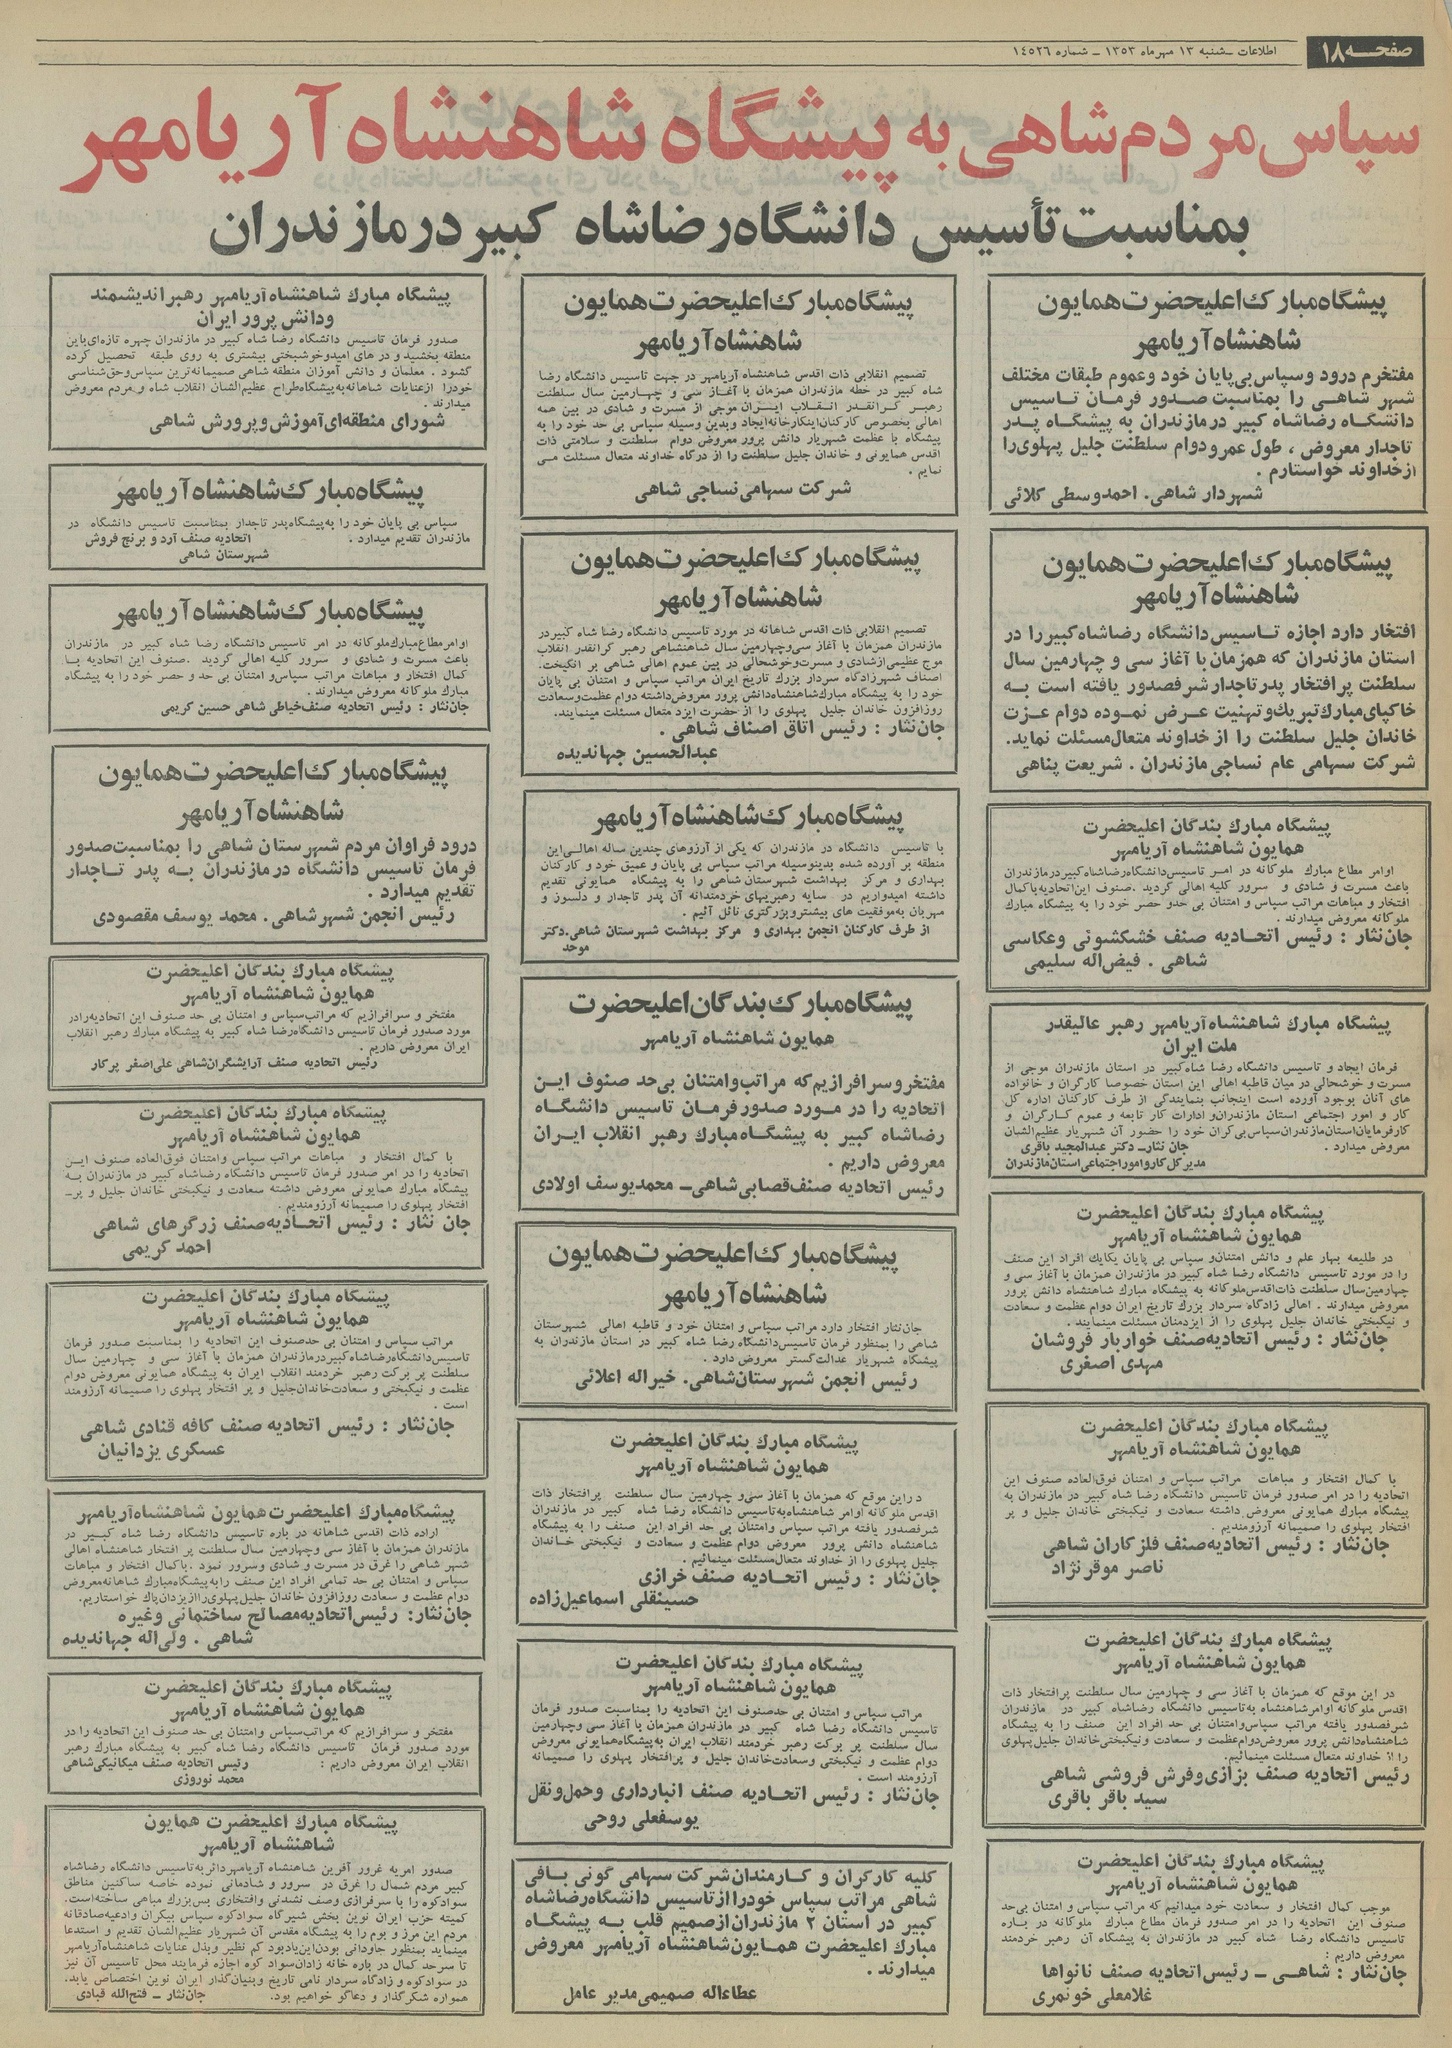 صفحه ۱۸
اطلاعات ـ شنبه ۱۳ مهرماه ۱۳۵۳ ـ شماره ۱۴۵۲۶
سپاس مردم شاهی به پیشگاه شاهنشاه آریامهر
بمناسبت تأسیس دانشگاه رضاشاه کبیر در مازندران
پیشگاه مبارک اعلیحضرت همایون
شاهنشاه آریامهر
مفتخرم درود و سپاس بی پایان خود و عموم طبقات مختلف
شهر شاهی را بمناسبت صدور فرمان تاسیس
دانشگاه رضاشاه کبیر در مازندران به پیشگاه پدر
تاجدار معروض ، طول عمر و دوام سلطنت جلیل پهلوی را
از خداوند خواستارم .
شهردار شاهی . احمد وسطی کلائی
پیشگاه مبارک اعلیحضرت همایون
شاهنشاه آریامهر
افتخار دارد اجازه تاسیس دانشگاه رضاشاه کبیر را در
استان مازندران که همزمان با آغاز سی و چهارمین سال
سلطنت پر افتخار پدر تاجدار شرف صدور یافته است به
خاکپای مبارک تبریک و تهنیت عرض نموده دوام عزت
خاندان جلیل سلطنت را از خداوند متعال مسئلت نماید.
شرکت سهامی عام نساجی مازندران . شریعت پناهی
پیشگاه مبارک بندگان اعلیحضرت
همایون شاهنشاه آریامهر
اوامر مطاع مبارک ملوکانه در امر تاسیس دانشگاه رضاشاه کبیر در مازندران
باعث مسرت و شادی و سرور کلیه اهالی گردید .صنوف این اتحادیه با کمال
افتخار و مباهات مراتب سپاس و امتنان بی حد و حصر خود را به پیشگاه مبارک
ملوکانه معروض میدارند .
جان نثار : رئیس اتحادیه صنف خشکشوئی و عکاسی
شاهی . فیض اله سلیمی
پیشگاه مبارک شاهنشاه آریامهر رهبر عالیقدر
ملت ایران
فرمان ایجاد و تاسیس دانشگاه رضا شاه کبیر در استان مازندران موجی از
مسرت و خوشحالی در میان قاطبه اهالی این استان خصوصا کارگران و خانواده
های آنان بوجود آورده است اینجانب بنمایندگی از طرف کارکنان اداره کل
کار و امور اجتماعی استان مازندران و ادارات کار تابعه و عموم کارگران و
کارفرمایان استان مازندران سپاس بی کران خود را حضور آن شهریار عظیم الشان
معروض میدارد . جان نثار ـ دکتر عبدالمجید باقری
مدیر کل کار و امور اجتماعی استان مازندران
پیشگاه مبارک بندگان اعلیحضرت
همایون شاهنشاه آریامهر
در طلیعه بهار علم و دانش امتنان و سپاس بی پایان یکایک افراد این صنف
را در مورد تاسیس دانشگاه رضا شاه کبیر در مازندران همزمان با آغاز سی و
چهارمین سال سلطنت ذات اقدس ملوکانه به پیشگاه مبارک شاهنشاه دانش پرور
معروض میدارند . اهالی زادگاه سردار بزرگ تاریخ ایران دوام عظمت و سعادت
و نیکبختی خاندان جلیل پهلوی را از ایزد منان مسئلت مینمایند .
جان نثار : رئیس اتحادیه صنف خواربار فروشان
مهدی اصغری
پیشگاه مبارک بندگان اعلیحضرت
همایون شاهنشاه آریامهر
با کمال افتخار و مباهات مراتب سپاس و امتنان فوق العاده صنوف این
اتحادیه را در امر صدور فرمان تاسیس دانشگاه رضا شاه کبیر در مازندران به
پیشگاه مبارک همایونی معروض داشته سعادت و نیکبختی خاندان جلیل و پر
افتخار پهلوی را صمیمانه آرزومندیم .
جان نثار : رئیس اتحادیه صنف فلز کاران شاهی
ناصر موقر نژاد
پیشگاه مبارک بندگان اعلیحضرت
همایون شاهنشاه آریامهر
در این موقع که همزمان با آغاز سی و چهارمین سال سلطنت پر افتخار ذات
اقدس ملوکانه اوامر شاهنشاه به تاسیس دانشگاه رضاشاه کبیر در مازندران
شرف صدور یافته مراتب سپاس و امتنان بی حد افراد این صنف را به پیشگاه
شاهنشاه دانش پرور معروض دوام عظمت و سعادت و نیکبختی خاندان جلیل پهلوی
را از خداوند متعال مسئلت مینمائیم.
رئیس اتحادیه صنف بزازی و فرش فروشی شاهی
سید باقر باقری
پیشگاه مبارک بندگان اعلیحضرت
همایون شاهنشاه آریامهر
موجب کمال افتخار و سعادت خود میدانیم که مراتب سپاس و امتنان بی حد
صنوف این اتحادیه را در امر صدور فرمان مطاع مبارک ملوکانه در باره
تاسیس دانشگاه رضا شاه کبیر در مازندران به پیشگاه آن رهبر خردمند
معروض داریم :
جان نثار : شاهی ـ رئیس اتحادیه صنف نانواها
غلامعلی خونمری
پیشگاه مبارک اعلیحضرت همایون
شاهنشاه آریامهر
تصمیم انقلابی ذات اقدس شاهنشاه آریامهر در جهت تاسیس دانشگاه رضا
شاه کبیر در خطه مازندران همزمان با آغاز سی و چهارمین سال سلطنت
رهبر گرانقدر انقلاب ایران موجی از مسرت و شادی در بین همه
اهالی بخصوص کارکنان اینکارخانه ایجاد و بدین وسیله سپاس بی حد خود را به
پیشگاه با عظمت شهریار دانش پرور معروض دوام سلطنت و سلامتی ذات
اقدس همایونی و خاندان جلیل سلطنت را از درگاه خداوند متعال مسئلت می
نمایم .
شرکت سهامی نساجی شاهی
پیشگاه مبارک اعلیحضرت همایون
شاهنشاه آریامهر
تصمیم انقلابی ذات اقدس شاهانه در مورد تاسیس دانشگاه رضا شاه کبیر در
مازندران همزمان با آغاز سی و چهارمین سال شاهنشاهی رهبر گرانقدر انقلاب
موج عظیمی از شادی و مسرت و خوشحالی در بین عموم اهالی شاهی بر انگیخت.
اصناف شهر زادگاه سردار بزرگ تاریخ ایران مراتب سپاس و امتنان بی پایان
خود را به پیشگاه مبارک شاهنشاه دانش پرور معروض داشته دوام عظمت و سعادت
روزافزون خاندان جلیل پهلوی را از حضرت ایزد متعال مسئلت مینمایند.
جان نثار : رئیس اتاق اصناف شاهی .
عبدالحسین جهاندیده
پیشگاه مبارک شاهنشاه آریامهر
با تاسیس دانشگاه در مازندران که یکی از آرزوهای چندین ساله اهالی این
منطقه بر آورده شده بدینوسیله مراتب سپاس بی پایان و عمیق خود و کارکنان
بهداری و مرکز بهداشت شهرستان شاهی را به پیشگاه همایونی تقدیم
داشته امیدواریم در سایه رهبریهای خردمندانه آن پدر تاجدار و دلسوز و
مهربان به موفقیت های بیشتر و بزرگتری نائل آئیم .
از طرف کارکنان انجمن بهداری و مرکز بهداشت شهرستان شاهی.دکتر
موحد
پیشگاه مبارک بندگان اعلیحضرت
همایون شاهنشاه آریامهر
مفتخر و سرافرازیم که مراتب و امتنان بی حد صنوف این
اتحادیه را در مورد صدور فرمان تاسیس دانشگاه
رضاشاه کبیر به پیشگاه مبارک رهبر انقلاب ایران
معروض داریم .
رئیس اتحادیه صنف قصابی شاهی ـ محمد یوسف اولادی
پیشگاه مبارک اعلیحضرت همایون
شاهنشاه آریامهر
جان نثار افتخار دارد مراتب سپاس و امتنان خود و قاطبه اهالی شهرستان
شاهی را بمنظور فرمان تاسیس دانشگاه رضا شاه کبیر در استان مازندران به
پیشگاه شهریار عدالت گستر معروض دارد .
رئیس انجمن شهرستان شاهی . خیراله اعلائی
پیشگاه مبارک بندگان اعلیحضرت
همایون شاهنشاه آریامهر
در این موقع که همزمان با آغاز سی و چهارمین سال سلطنت پر افتخار ذات
اقدس ملوکانه اوامر شاهنشاه به تاسیس دانشگاه رضا شاه کبیر در مازندران
شرف صدور یافته مراتب سپاس و امتنان بی حد افراد این صنف را به پیشگاه
شاهنشاه دانش پرور معروض دوام عظمت و سعادت و نیکبختی خاندان
جلیل پهلوی را از خداوند متعال مسئلت مینمائیم .
جان نثار : رئیس اتحادیه صنف خرازی
حسینقلی اسماعیل زاده
پیشگاه مبارک بندگان اعلیحضرت
همایون شاهنشاه آریامهر
مراتب سپاس و امتنان بی حد صنوف این اتحادیه را بمناسبت صدور فرمان
تاسیس دانشگاه رضا شاه کبیر در مازندران همزمان با آغاز سی و چهارمین
سال سلطنت پر برکت رهبر خردمند انقلاب ایران به پیشگاه همایونی معروض
دوام عظمت و نیکبختی و سعادت خاندان جلیل و پر افتخار پهلوی را صمیمانه
آرزومند است .
جان نثار : رئیس اتحادیه صنف انبارداری و حمل و نقل
یوسفعلی روحی
کلیه کارگران و کارمندان شرکت سهامی گونی بافی
شاهی مراتب سپاس خود را از تاسیس دانشگاه رضاشاه
کبیر در استان ۲ مازندران از صمیم قلب به پیشگاه
مبارک اعلیحضرت همایون شاهنشاه آریامهر معروض
میدارند .
عطاءاله صمیمی مدیر عامل
پیشگاه مبارک شاهنشاه آریامهر رهبر اندیشمند
و دانش پرور ایران
صدور فرمان تاسیس دانشگاه رضا شاه کبیر در مازندران چهره تازه ای باین
منطقه بخشید و در های امید و خوشبختی بیشتری به روی طبقه تحصیل کرده
گشود . معلمان و دانش آموزان منطقه شاهی صمیمانه ترین سپاس و حق شناسی
خود را از عنایات شاهانه به پیشگاه طراح عظیم الشان انقلاب شاه و مردم معروض
میدارند .
شورای منطقه ای آموزش و پرورش شاهی
پیشگاه مبارک شاهنشاه آریامهر
سپاس بی پایان خود را به پیشگاه پدر تاجدار بمناسبت تاسیس دانشگاه در
مازندران تقدیم میدارد . اتحادیه صنف آرد و برنج فروش
شهرستان شاهی
پیشگاه مبارک شاهنشاه آریامهر
اوامر مطاع مبارک ملوکانه در امر تاسیس دانشگاه رضا شاه کبیر در مازندران
باعث مسرت و شادی و سرور کلیه اهالی گردید .صنوف این اتحادیه با
کمال افتخار و مباهات مراتب سپاس و امتنان بی حد و حصر خود را به پیشگاه
مبارک ملوکانه معروض میدارند .
جان نثار : رئیس اتحادیه صنف خیاطی شاهی حسین کریمی
پیشگاه مبارک اعلیحضرت همایون
شاهنشاه آریامهر
درود فراوان مردم شهرستان شاهی را بمناسبت صدور
فرمان تاسیس دانشگاه در مازندران به پدر تاجدار
تقدیم میدارد .
رئیس انجمن شهر شاهی . محمد یوسف مقصودی
پیشگاه مبارک بندگان اعلیحضرت
همایون شاهنشاه آریامهر
مفتخر و سرافرازیم که مراتب سپاس و امتنان بی حد صنوف این اتحادیه را در
مورد صدور فرمان تاسیس دانشگاه رضا شاه کبیر به پیشگاه مبارک رهبر انقلاب
ایران معروض داریم .
رئیس اتحادیه صنف آرایشگران شاهی علی اصغر پرکار
پیشگاه مبارک بندگان اعلیحضرت
همایون شاهنشاه آریامهر
با کمال افتخار و مباهات مراتب سپاس و امتنان فوق العاده صنوف این
اتحادیه را در امر صدور فرمان تاسیس دانشگاه رضا شاه کبیر در مازندران به
پیشگاه مبارک همایونی معروض داشته سعادت و نیکبختی خاندان جلیل و پر ـ
افتخار پهلوی را صمیمانه آرزومندیم .
جان نثار : رئیس اتحادیه صنف زرگرهای شاهی
احمد کریمی
پیشگاه مبارک بندگان اعلیحضرت
همایون شاهنشاه آریامهر
مراتب سپاس و امتنان بی حد صنوف این اتحادیه را بمناسبت صدور فرمان
تاسیس دانشگاه رضاشاه کبیر در مازندران همزمان با آغاز سی و چهارمین سال
سلطنت پر برکت رهبر خردمند انقلاب ایران به پیشگاه همایونی معروض دوام
عظمت و نیکبختی و سعادت خاندان جلیل و پر افتخار پهلوی را صمیمانه آرزومند
است .
جان نثار : رئیس اتحادیه صنف کافه قنادی شاهی
عسکری یزدانیان
پیشگاه مبارک اعلیحضرت همایون شاهنشاه آریامهر
اراده ذات اقدس شاهانه در باره تاسیس دانشگاه رضا شاه کبیر در
مازندران همزمان با آغاز سی و چهارمین سال سلطنت پر افتخار شاهنشاه اهالی
شهر شاهی را غرق در مسرت و شادی و سرور نمود .با کمال افتخار و مباهات
سپاس و امتنان بی حد تمامی افراد این صنف را به پیشگاه مبارک شاهانه معروض
دوام عظمت و سعادت روزافزون خاندان جلیل پهلوی را از یزدان پاک خواستاریم.
جان نثار: رئیس اتحادیه مصالح ساختمانی و غیره
شاهی . ولی اله جهاندیده
پیشگاه مبارک بندگان اعلیحضرت
همایون شاهنشاه آریامهر
مفتخر و سرافرازیم که مراتب سپاس و امتنان بی حد صنوف این اتحادیه را در
مورد صدور فرمان تاسیس دانشگاه رضا شاه کبیر به پیشگاه مبارک رهبر
انقلاب ایران معروض داریم : رئیس اتحادیه صنف میکانیکی شاهی
محمد نوروزی
پیشگاه مبارک اعلیحضرت همایون
شاهنشاه آریامهر
صدور امریه غرور آفرین شاهنشاه آریامهر دائر به تاسیس دانشگاه رضاشاه
کبیر مردم شمال را غرق در سرور و شادمانی نموده خاصه ساکنین مناطق
سوادکوه را با سرفرازی وصف نشدنی و افتخاری بس بزرگ مباهی ساخته است.
کمیته حزب ایران نوین بخش شیرگاه سوادکوه سپاس بیکران و ادعیه صادقانه
مردم این مرز و بوم را به پیشگاه مقدس آن شهریار عظیم الشان تقدیم و استدعا
مینماید بمنظور جاودانی بودن این یادبود کم نظیر و بذل عنایات شاهنشاه آریامهر
تا سرحد کمال در باره خانه زادان سواد کوه اجازه فرمایند محل تاسیس آن نیز
در سوادکوه و زادگاه سردار نامی تاریخ و بنیان گذار ایران نوین اختصاص یابد.
همواره شکرگذار و دعاگو خواهیم بود. جان نثار ـ فتح الله قبادی